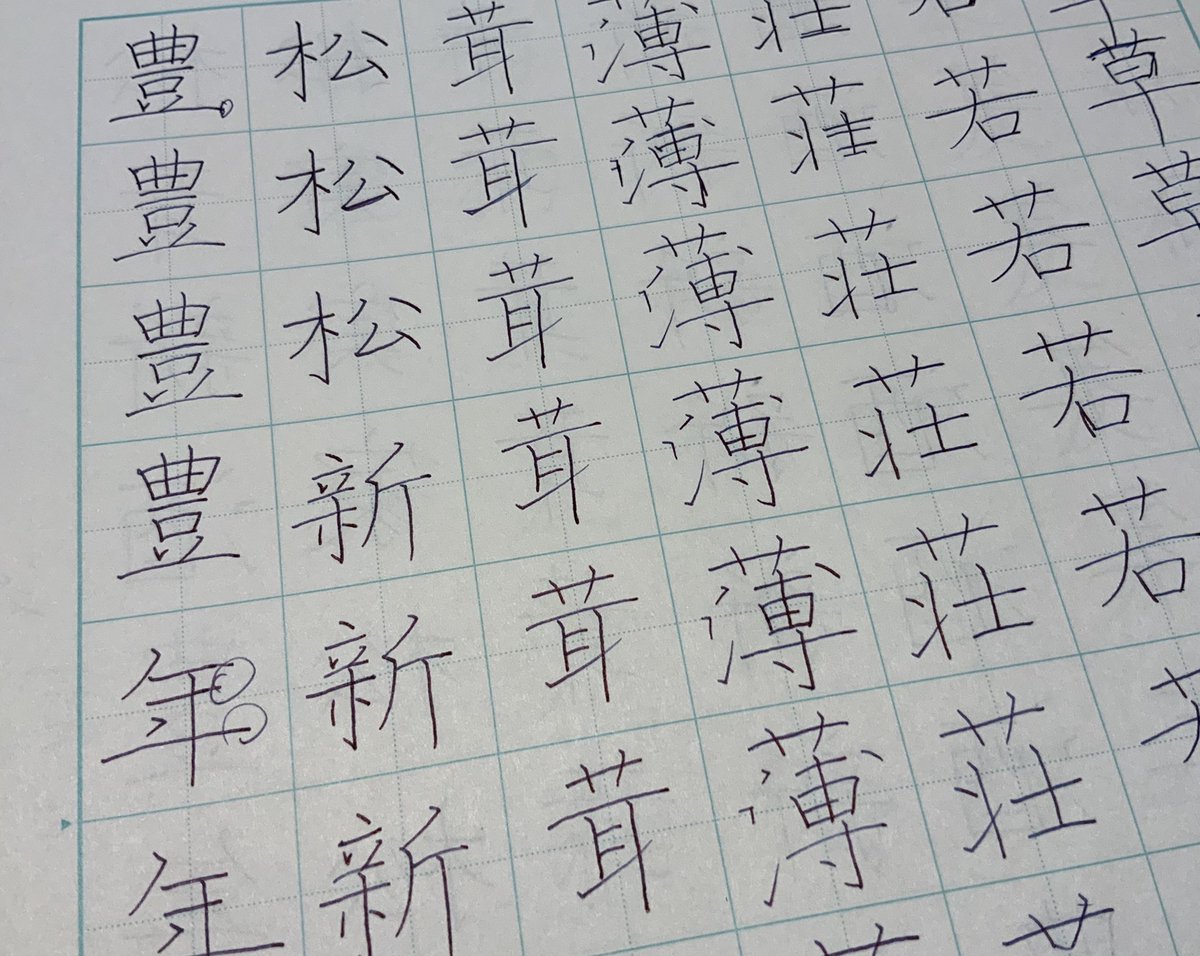 草草
若若若若
荘荘荘荘荘荘
薄薄薄薄薄薄
茸茸茸茸茸茸
松松松新新新
豊豊豊豊年年